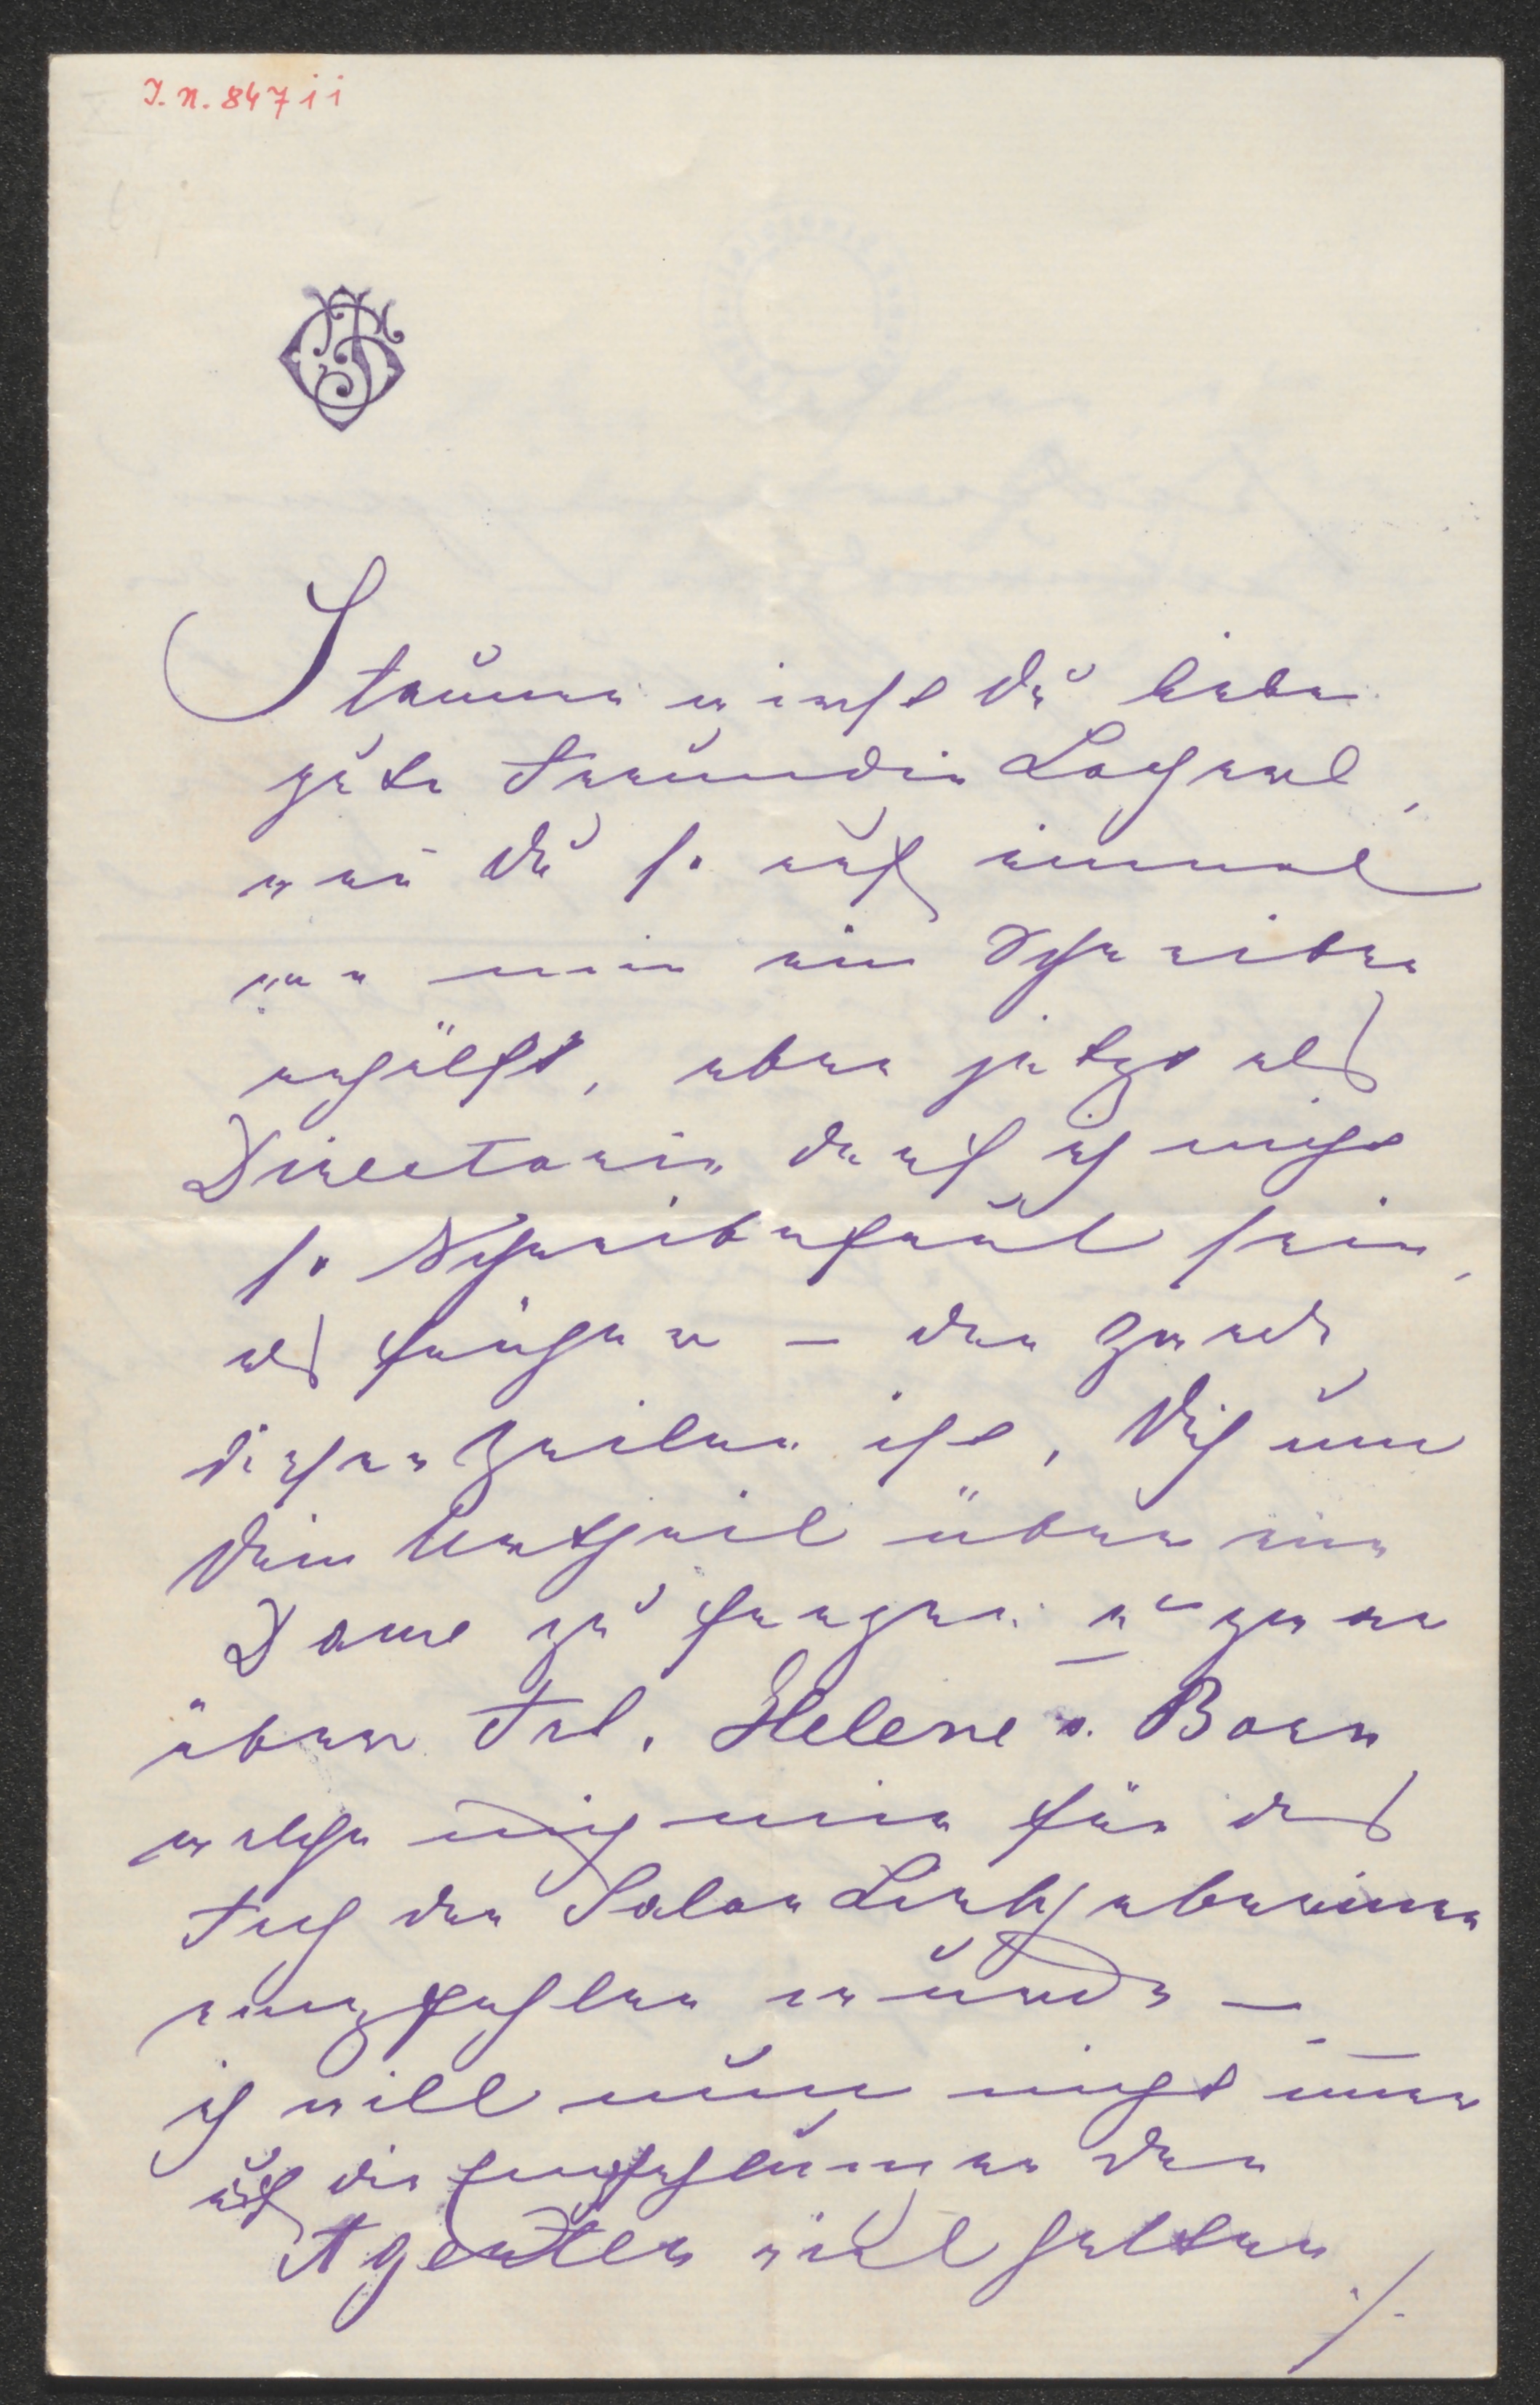 I. N. 847 i i
Staunen wirst Du liebe
gute Freundin
wenn Du so auf einmal
von mir ein Schreiben
erhälst, aber jetzt als
Directorin darf ich nicht
so Schreibefaul sein,
als früher – der Zweck
dieser Zeilen ist, Dich um
Dein Urtheil über eine
Dame zu fragen u zwar
über Frl. Helene v. Born
welche mir für das
Fach der Salon Liebhaberinen
empfohlen wurde –
ich will nun nicht immer
auf die Empfehlungen der
Agenten viel halten
./.